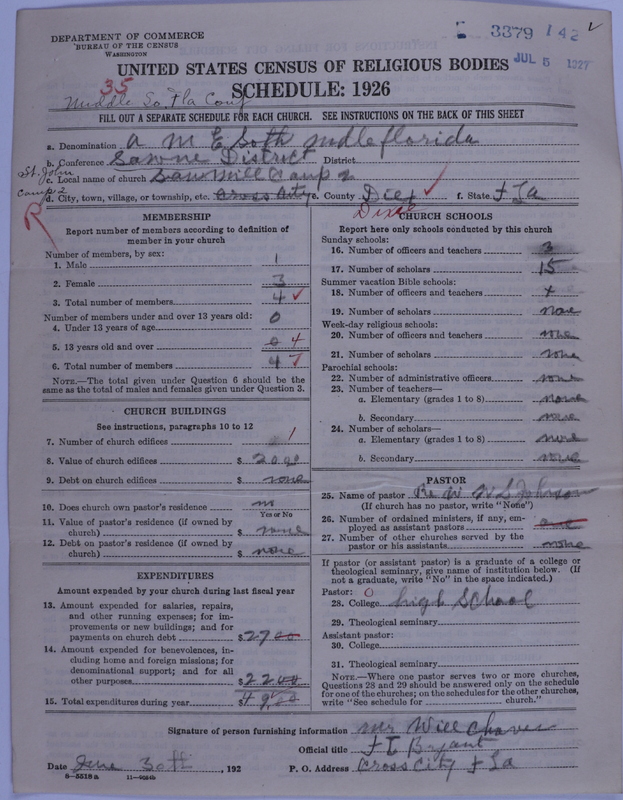 DEPARTMENT OF COMMERCE
BUREAU OF THE CENSUS
WASHINGTON
3379 142
JUL 5 1927
UNITED STATES CENSUS OF RELIGIOUS BODIES
SCHEDULE: 1926
35
Middle So. Fla Conf
FILL OUT A SEPARATE SCHEDULE FOR EACH CHURCH. SEE INSTRUCTIONS ON THE BACK OF THIS SHEET
a. Denomination A M E Soth mdleflorida
b. Conference Sawne District District
St. John
Camp 2
c. Local name of church Sawmill Camp 2
d. City, town, village, or township, etc. Cross City e. County Diex f. State Fla
Dixie
R
MEMBERSHIP
Report number of members according to definition of
member in your church
Number of members, by sex:
1. Male 1
2. Female 3
3. Total number of members 4
Number of members under and over 13 years old:
4. Under 13 years of age 0
5. 13 years old and over 4
6. Total number of members 4
NOTE.—The total given under Question 6 should be the
same as the total of males and females given under Question 3.
CHURCH BUILDINGS
See instructions, paragraphs 10 to 12
7. Number of church edifices 1
8. Value of church edifices $ 200
9. Debt on church edifices $ none
10. Does church own pastor's residence no
Yes or No
11. Value of pastor's residence (if owned by
church) $ none
12. Debt on pastor's residence (if owned by
church) $ none
EXPENDITURES
Amount expended by your church during last fiscal year
13. Amount expended for salaries, repairs,
and other running expenses; for im-
provements or new buildings; and for
payments on church debt $ 27 00
14. Amount expended for benevolences, in-
cluding home and foreign missions; for
denominational support; and for all
other purposes $ 22 00
15. Total expenditures during year $ 49.00
CHURCH SCHOOLS
Report here only schools conducted by this church
Sunday schools:
16. Number of officers and teachers 3
17. Number of scholars 15
Summer vacation Bible schools:
18. Number of officers and teachers x
19. Number of scholars none
Week-day religious schools:
20. Number of officers and teachers none
21. Number of scholars none
Parochial schools:
22. Number of administrative officers none
23. Number of teachers—
a. Elementary (grades 1 to 8) none
b. Secondary none
24. Number of scholars—
a. Elementary (grades 1 to 8) none
b. Secondary none
PASTOR
25. Name of pastor Re W W L Johnson
(If church has no pastor, write "None")
26. Number of ordained ministers, if any, em-
ployed as assistant pastors one
27. Number of other churches served by the
pastor or his assistants none
If pastor (or assistant pastor) is a graduate of a college or
theological seminary, give name of institution below. (If
not a graduate, write "No" in the space indicated.)
Pastor: 0
28. College high School
29. Theological seminary
Assistant pastor:
30. College
31. Theological seminary
NOTE.—Where one pastor serves two or more churches,
Questions 28 and 29 should be answered only on the schedule
for one of the churches; on the schedules for the other churches,
write "See schedule for church."
Signature of person furnishing information mr Will Chaves
Official title F E Bryant
Date June 30th, 192 P. O. Address Cross City Fla
8—5518a 11—9024b